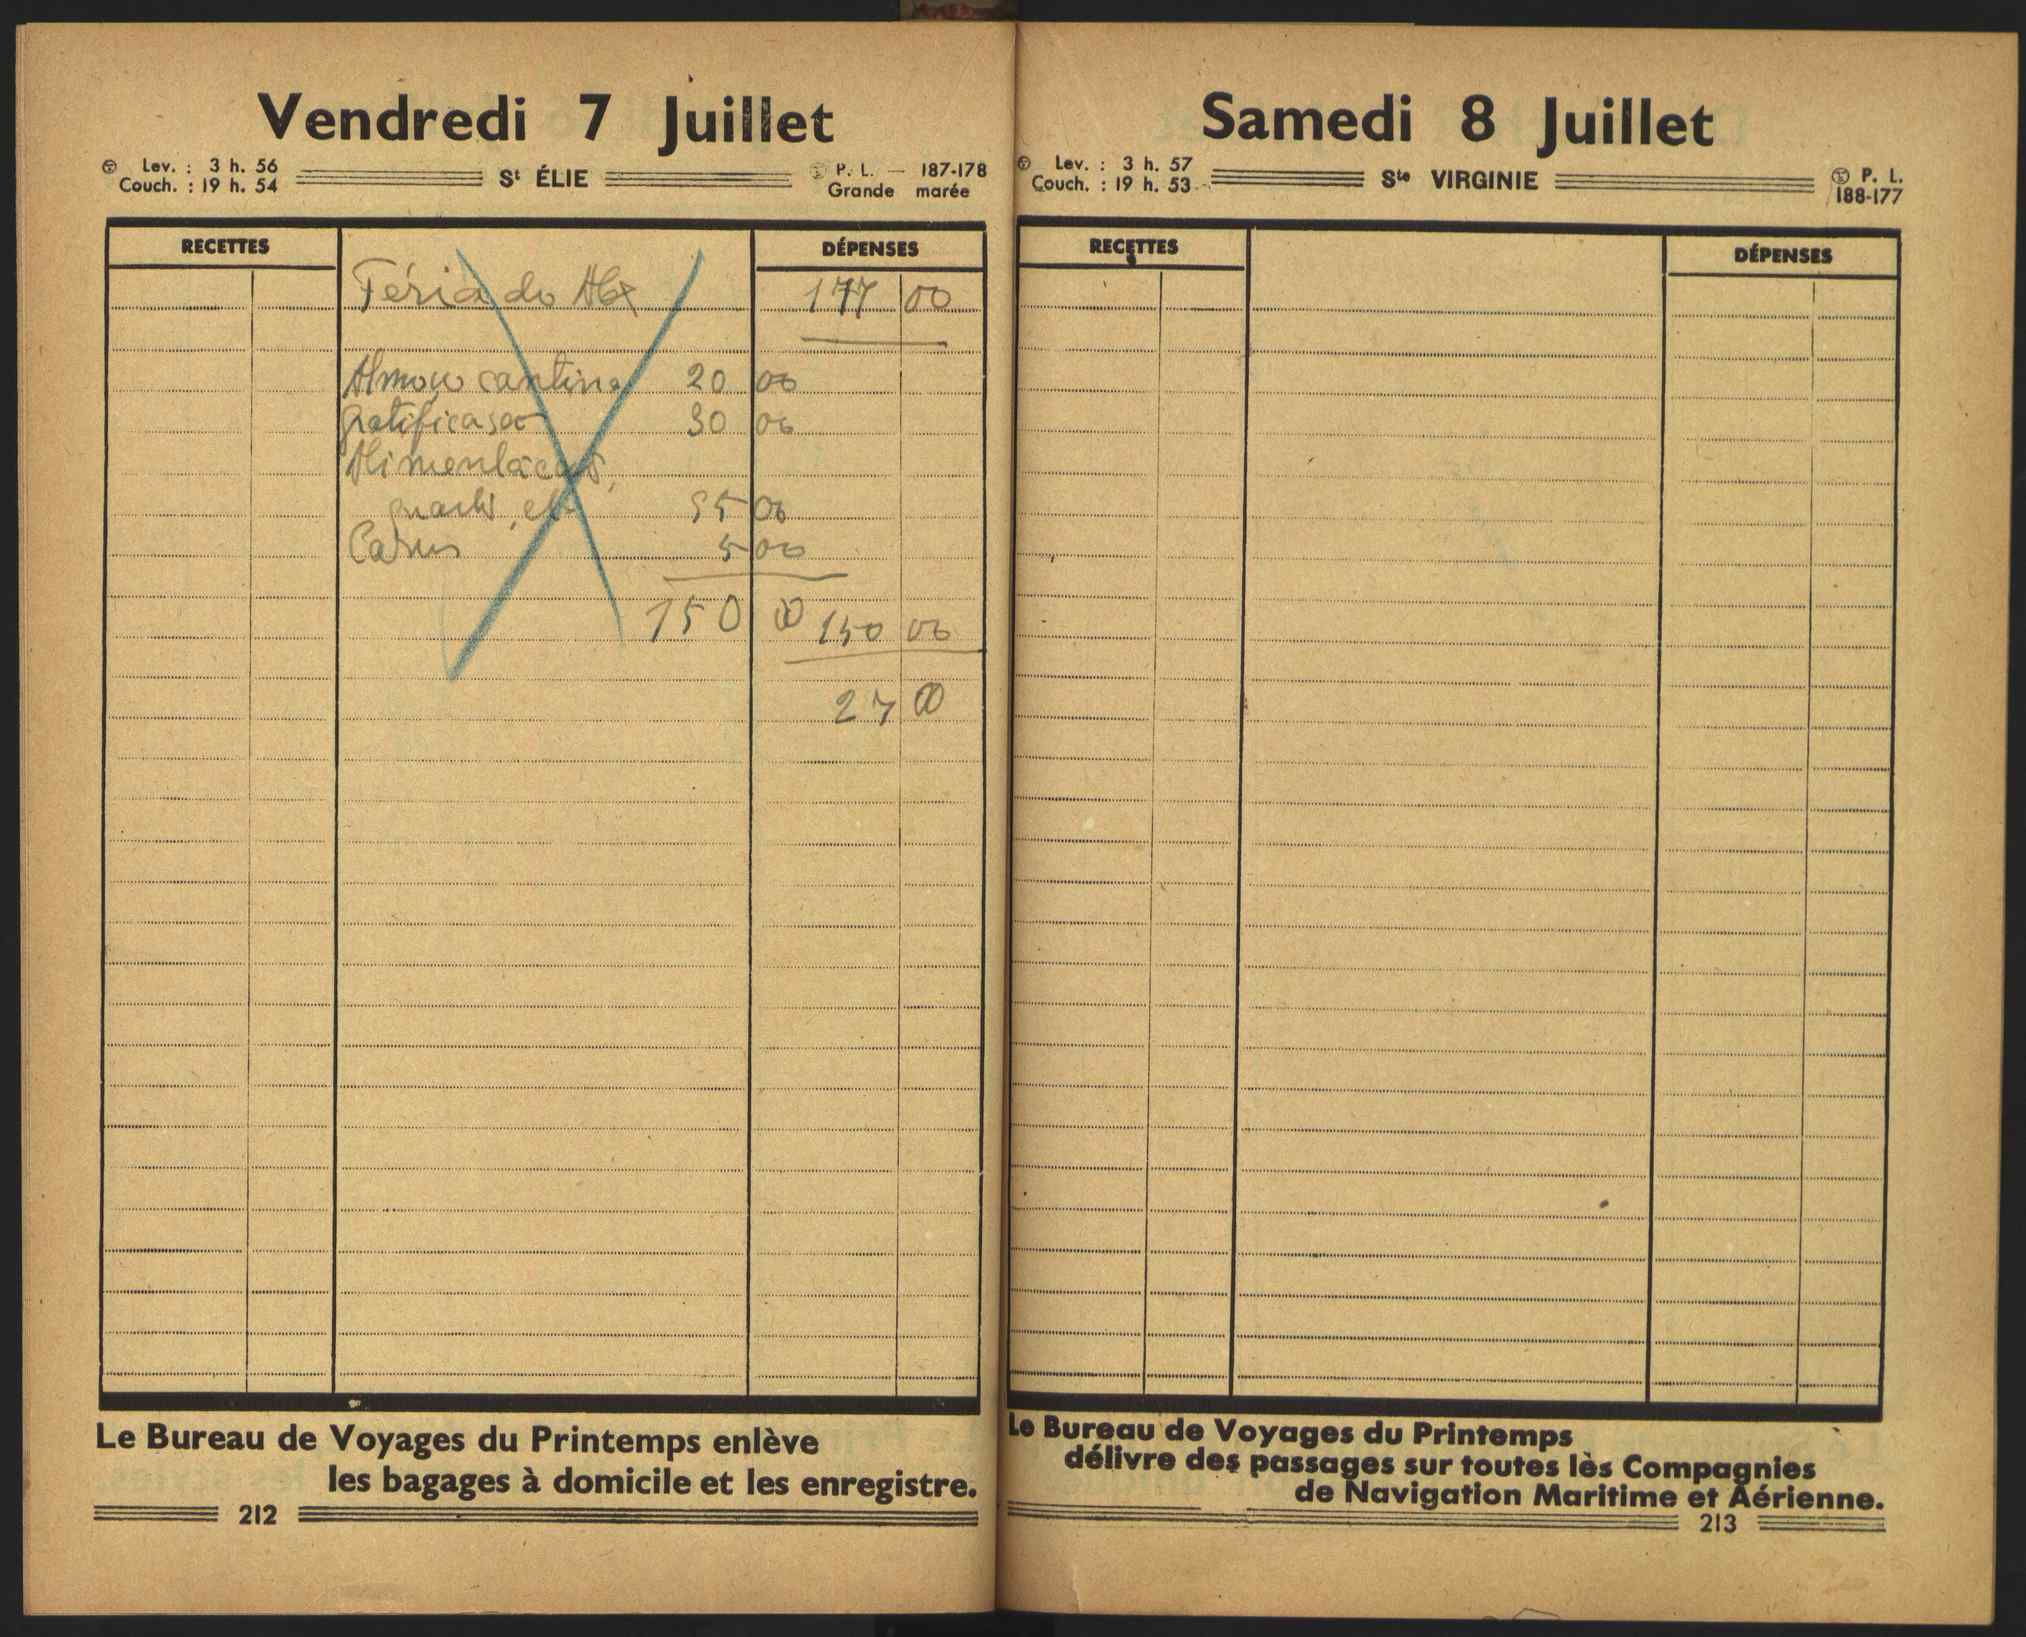 Vendredi 7 Juillet
Lev. : 3 h. 56
Couch. : 19 h. 54
St ÉLIE
P. L. — 187-178
Grande marée
RECETTES
DÉPENSES
Féria do Alex 177 00
Almoço cantina 20 00
gratificasão 30 00
Alimentacão,
etc 95 00
5 00
150 00 150 00
27 00
Le Bureau de Voyages du Printemps enlève
les bagages à domicile et les enregistre.
212
Samedi 8 Juillet
Lev. : 3 h. 57
Couch. : 19 h. 53
Ste VIRGINIE
P. L.
188-177
RECETTES
DÉPENSES
Le Bureau de Voyages du Printemps
délivre des passages sur toutes lès Compagnies
de Navigation Maritime et Aérienne.
213